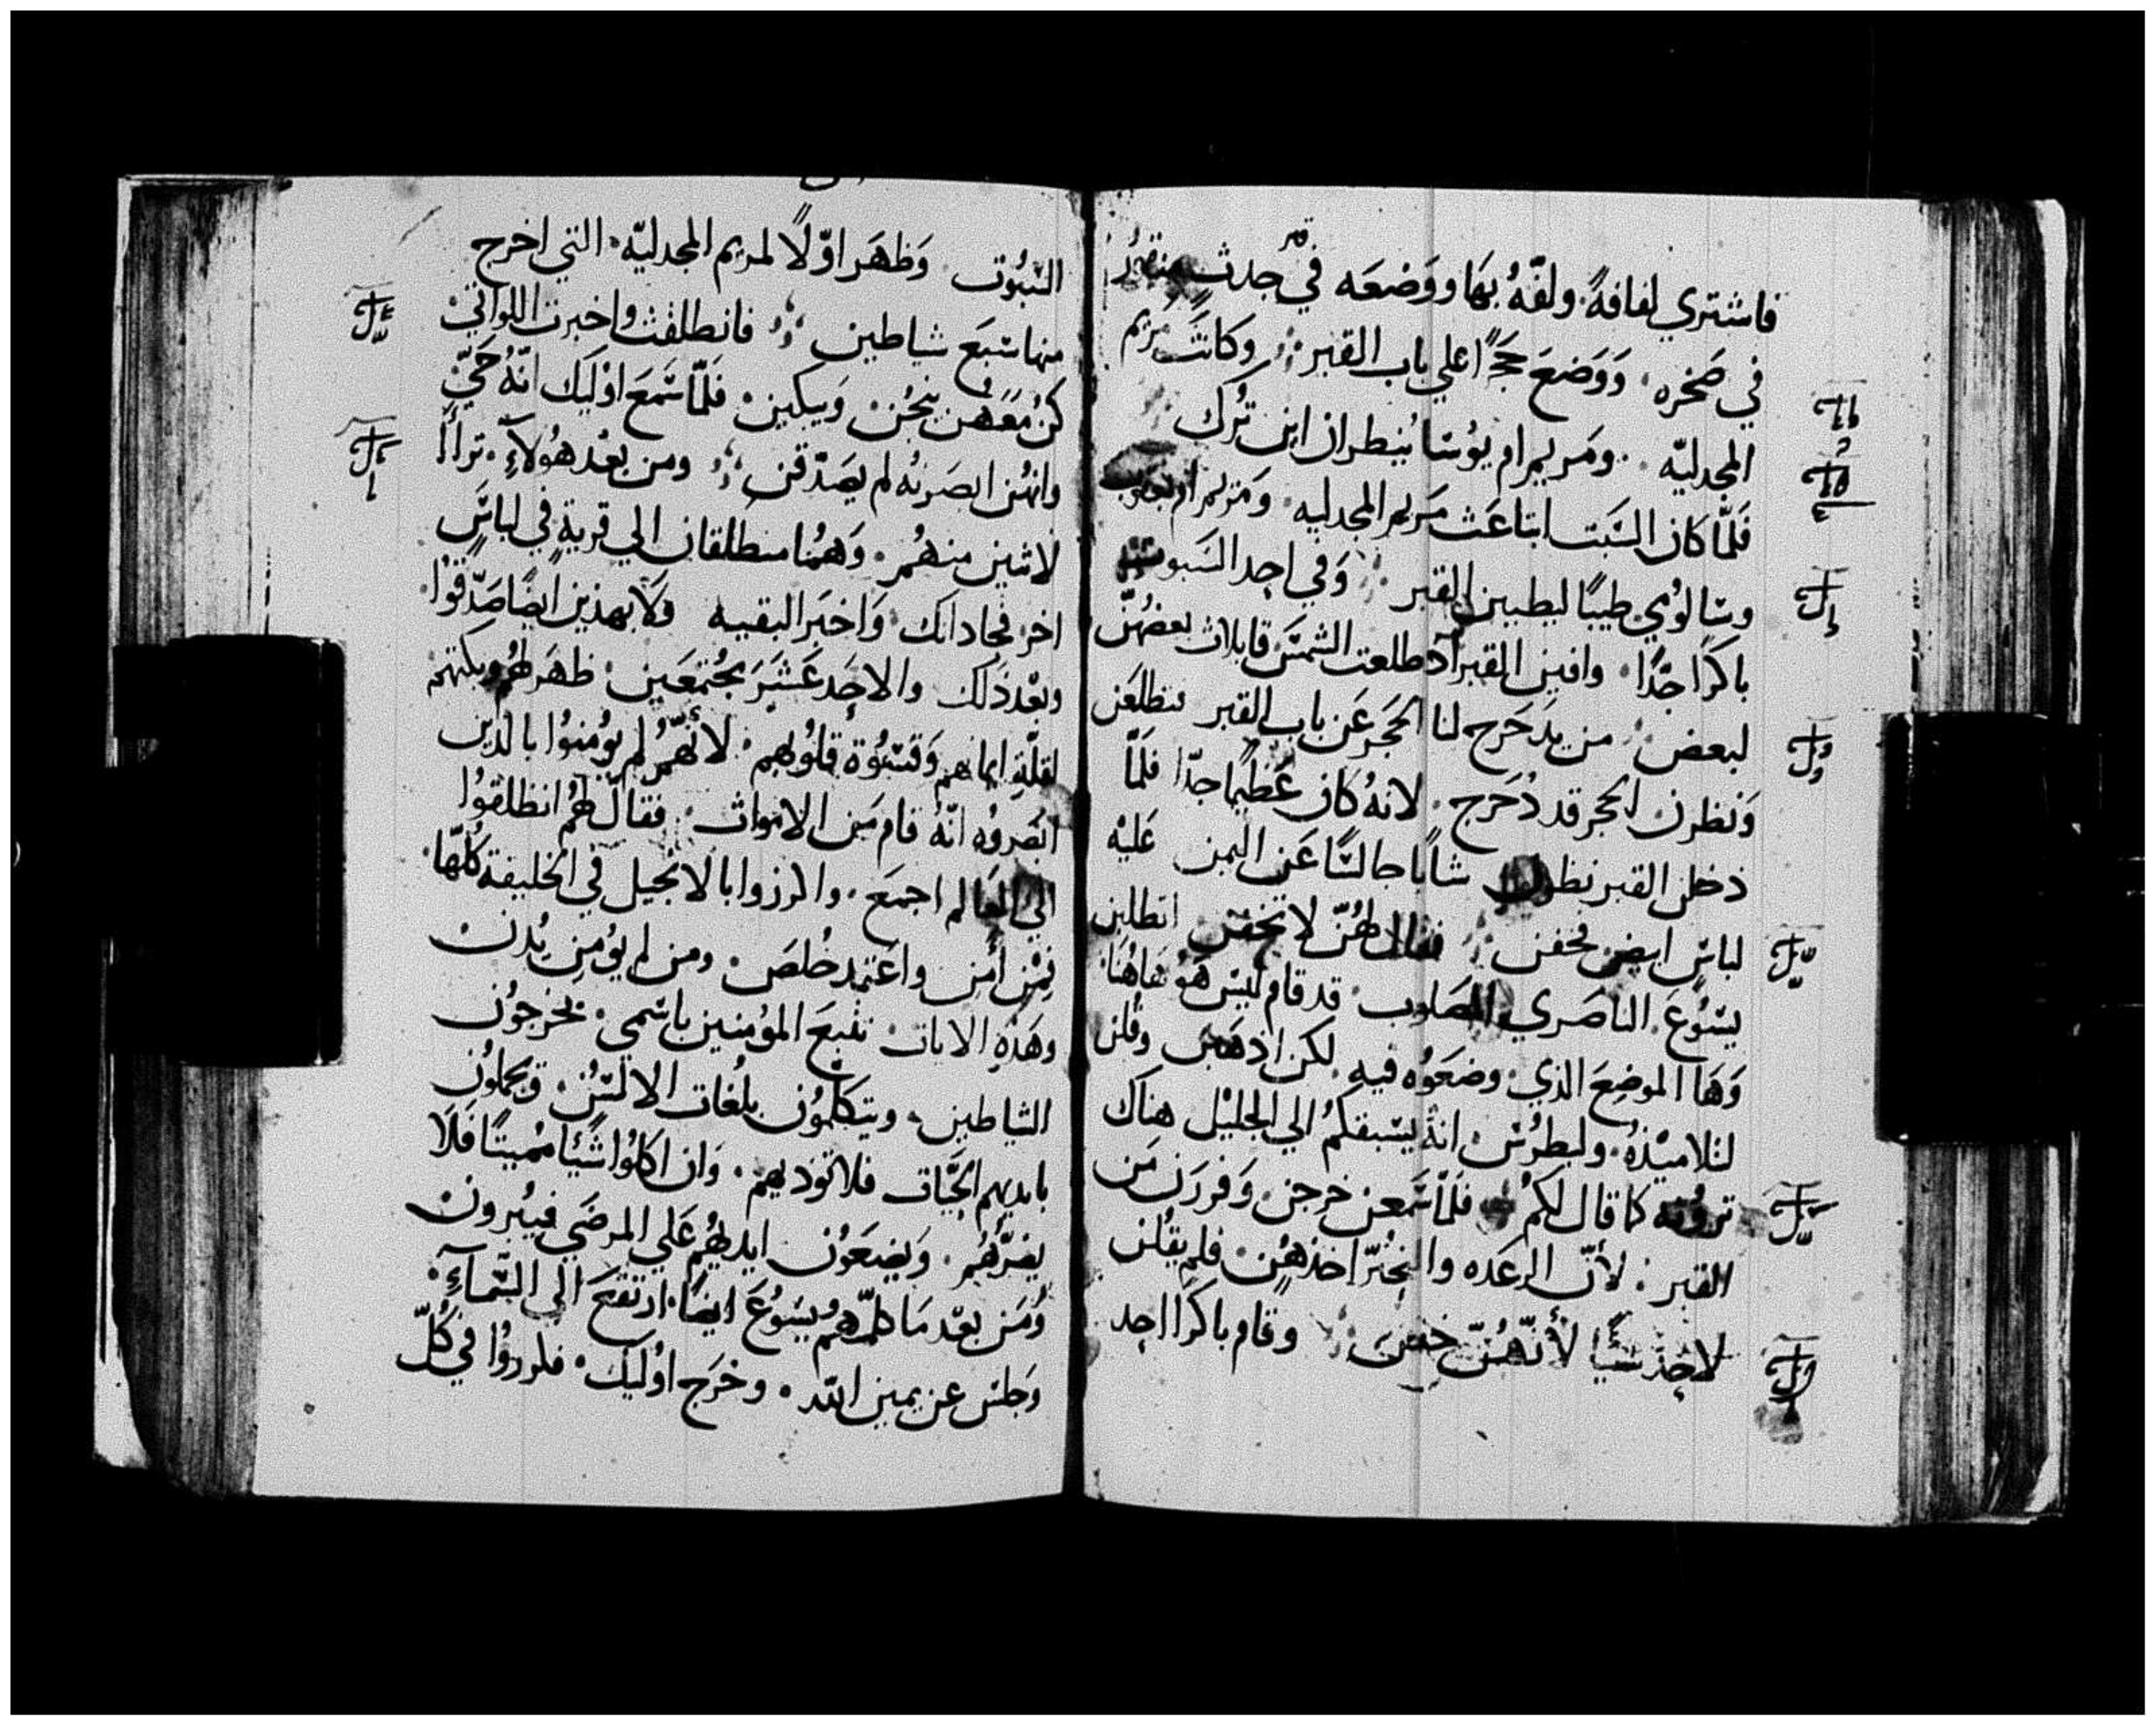 فاشتري لفافةً ولفّهُ بهَا ووَضعَه في جدث منقور
في صَخره، وَوَضعَ حَجَرًا علي باب القبر وكانَت مريم
المجدليّه ومَريم ام يوُسَا يُنظران اين تُرك
فَلمّا كان السَّبَت ابتاعَت مَريم المجدليه ومَريم ام يعقوب
وسَالوُمي طيبًا ليطيبن القبر وَفي احِد السَبوت
باكرًا جدًا، وافين القبر اد طلعت الشمسَ قايلات بعضهُنّ
لبعض من يدَحَرج لنا الحَجر عَن باب القبر فتطلعَن
وَنظرن الحجر قد دُحَرج. لانهُ كان عَظيمًا جدّا فلَمّا
دخلن القبر نظرن شابًا جالسًا عَن اليمن عَليْه
لباسٍ ابيض فخفن فقال لهُنّ لا تخفن اتطلبن
يسَوُعَ الناصَري المصَلوب قد قام ليسَ هَوُ هَاهُنَا
وَهَا الموضِعَ الذي وضعَوُه فيه لكن اذهَبن وقُلن
لتلاميْذهُ ولبطرُسَ انهُ يسَبقكمُ الي الجليْل هنِاك
تروُنه كما قال لكمُ فلَمّا سَمعن خرجن وَفررَن مَن
القبر لأنّ الرعَده والتحُيّر اخذهُن فلم يقُلن
لاحِدٍ شيًا لأنّهُنّ خفن وقام باكرًا احِد
السَبوُت وَظهَر اوّلًا لمريم المجدليّه التي اخرج
منها سَبعَ شياطين فانطلقت واخبرت اللواتي
كنُ مَعَهُن ينحُن وَيبكين فلَمّا سَمعَ اوُليَك انّهُ حَيّ
وانهُن ابصَرنهُ لم يصَدّقن ومن بعُد هَوُلآءِ تراأا
لاثنين منهُمر وَهَمُا منطلقان الي قرية في لباسٍ
اخر فجا داىك وَاخبَر البقيه ولَا بهذين ايضًا صَدّقوُا
وبعْد ذَلك والاحَد عَشَرَ مجُتمعَين ظهَر لهُم وبكتهم
لقلّة ايمانهم وَقسَوُة قلوُبهم لأنّهُم لم يوُمنوُا بالذين
ابصَروُه انّهُ قام مَن الاموات فقال لهُم انطلقوُا
الي العَالم اجمَعَ واكرزوا بالانجيل في الخليقة كلُّهَا
فمَن أمَن واعَتمد خلُصَ ومن لم يوُمِن يدُنْ
وهَذهِ الايات تتبعَ المؤمنين باسَمي يخرجوُن
الشياطين ويتكلّموُن بلُغات الالسَن ويحَملوُن
بايديهم الحَيّات فلا توذيهم وَان اكلوُا شَيًا مُميتًا فَلَا
يضرّهُم وَيضعَوُن ايديهُم عَلي المرضَي فيبرون
وَمَن بعْد مَا كلّمهم يسَوُعَ ايضًا ارتفعَ الي السَّمآءِ
وَجلسَ عن يمين الله وخرَج اوُليك فكرزوُا في كُلّ